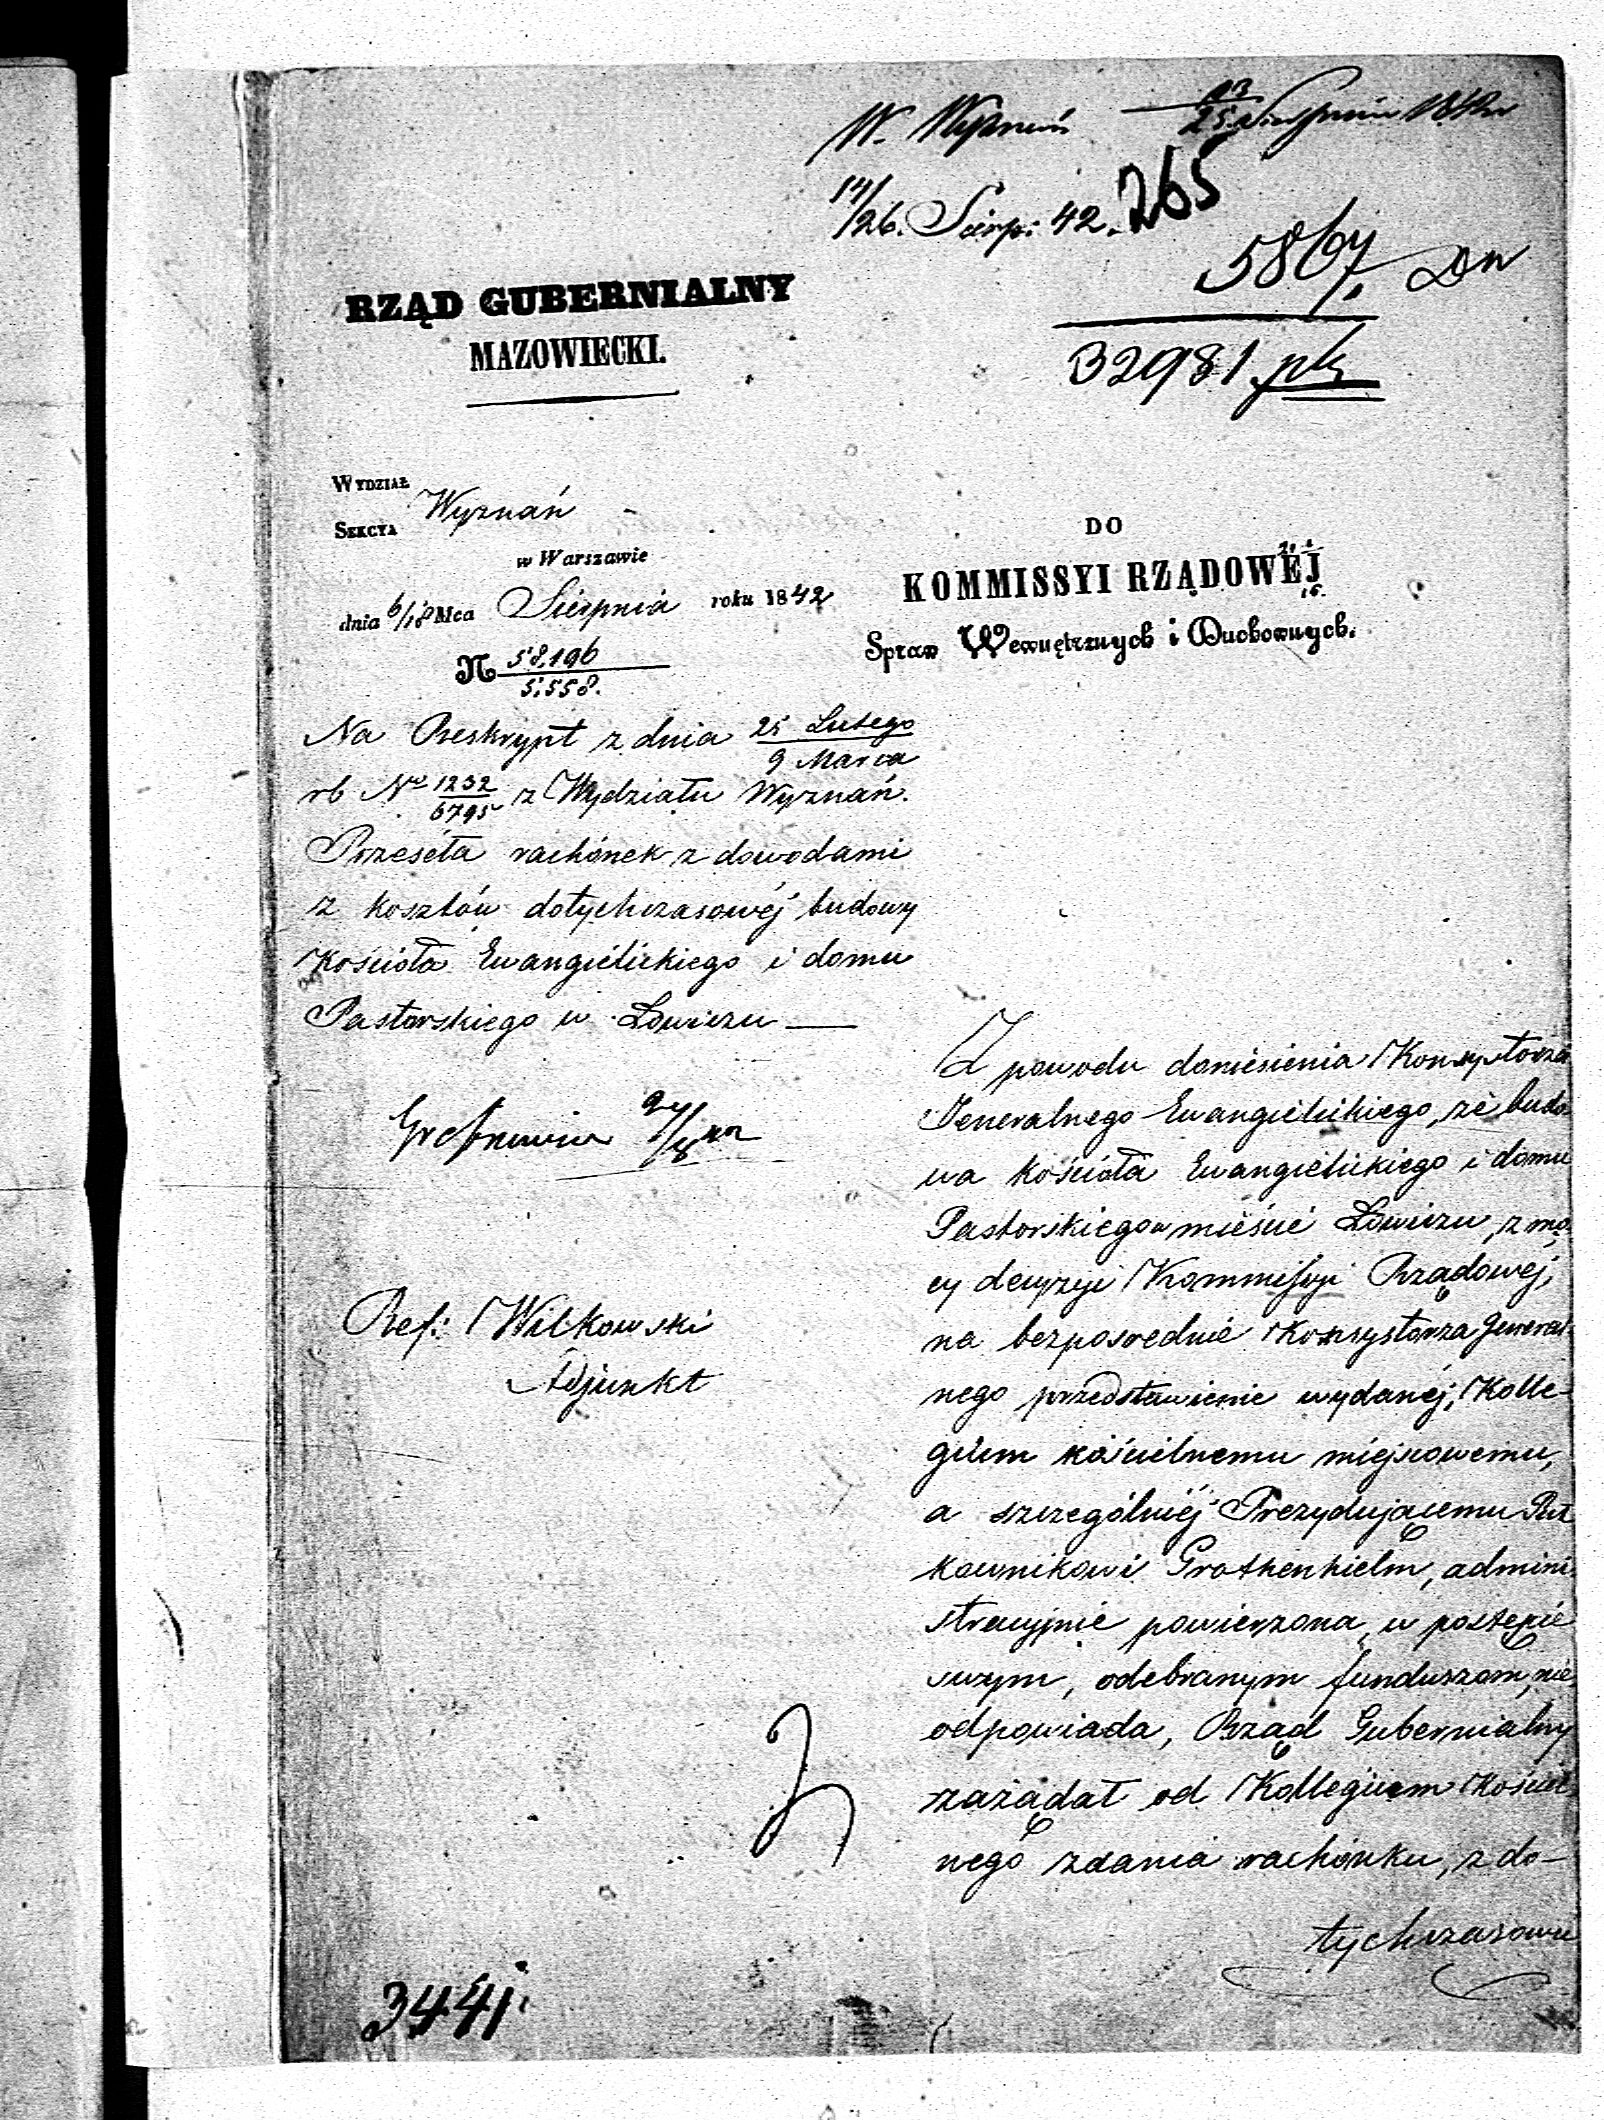 W. Wyznań 13/25 Sierpnia 1842
14/26. Sierp: 42. 265
5867.
32981.
RZĄD GUBERNIALNY
MAZOWIECKI.
WYDZIAŁ
Wyznań
SEKCYA
w Warszawie
dnia 6/18 Mca Sierpnia roku 1842
N 58,196/5,558.
DO
KOMMISSYI RZĄDOWÉJ
Spraw Wewnętrznych i Duchownych.
Na Reskrypt z dnia 25 Lutego/9 Marca
rb No 1232/6795 z Wydziału Wyznań.
Przeséła rachónek z dowodami
z kosztów dotychczasowéj budowy
Kościoła Ewangielickiego i domu
Pastorskiego w Łowiczu —
Ref: Witkowski
Adjunkt
Z powodu doniesienia Konsystorza
Jeneralnego Ewangielickiego, że budo
wa kościoła Ewangielickiego i domu
Pastorskiego w mieście Łowiczu, z mo
cy decyzyi Kommissyi Rządowéj,
na bezpośrednie Konsystorza Jeneral
nego przedstawienie wydanéj, Kolle-
gium kościelnemu miejscowemu,
a szczególniéj Prezydującemu Puł
kownikowi Grothenhielm, admini
stracyjnie powierzona, w postępie
swym, odebranym funduszom, nie
odpowiada, Rząd Gubernialny
zażądał od Kollegium Kościel
nego zdania rachónku, z do-
tychczasowe
3441.